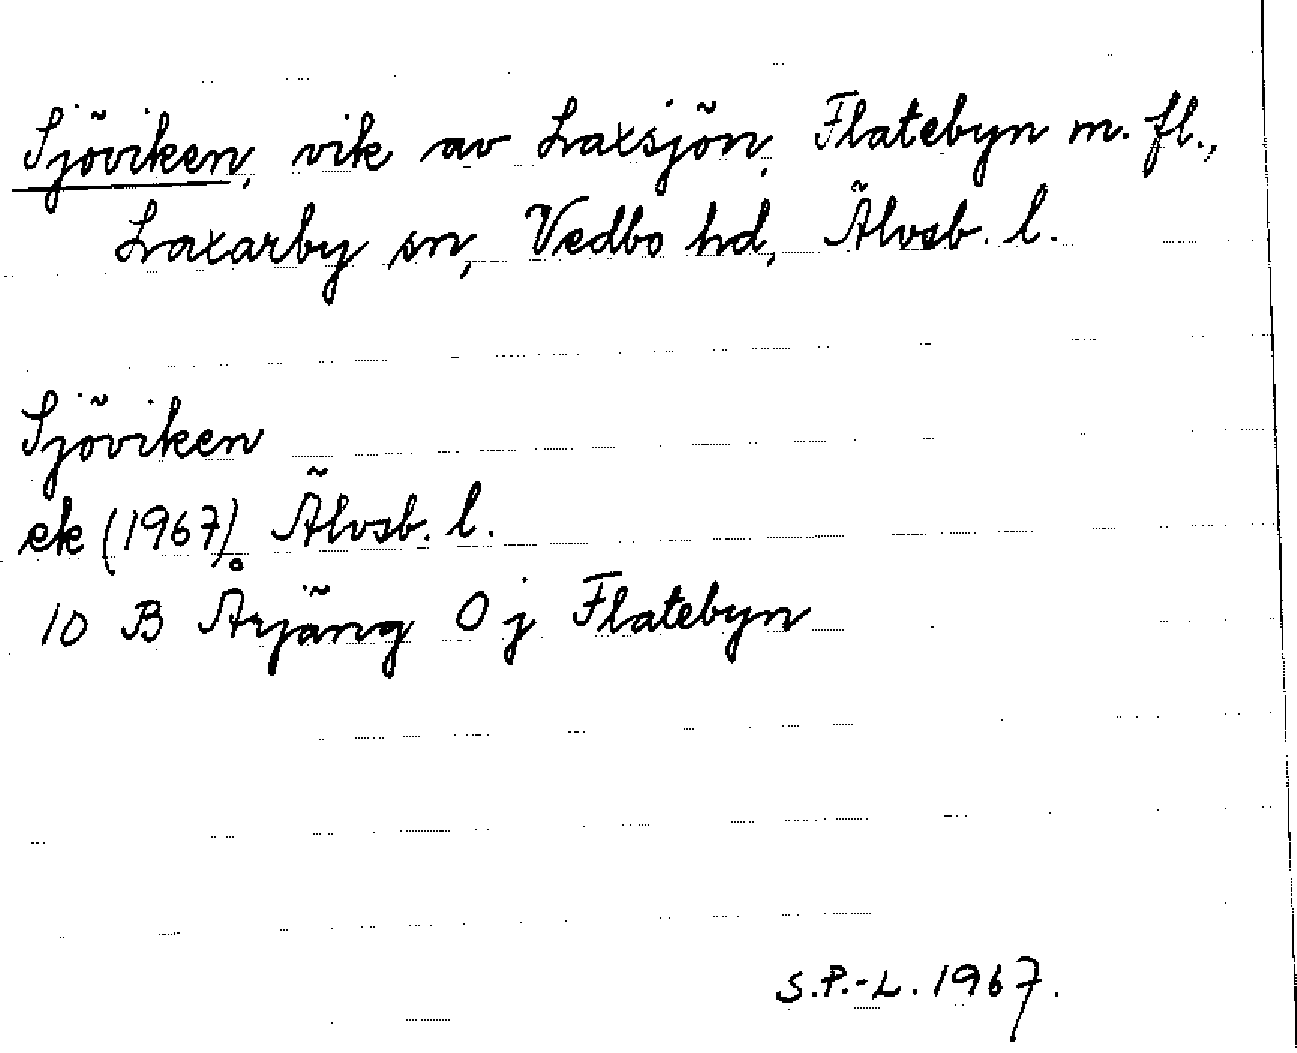 Sjöviken, vik av Laxsjön, Flatebyn m. fl.,
Laxarby sn, Vedbo hd, Älvsb. l.
Sjöviken
ek (1967) Älvsb. l.
10 B Årjäng 0 j Flatebyn
S.P.-L. 1967.